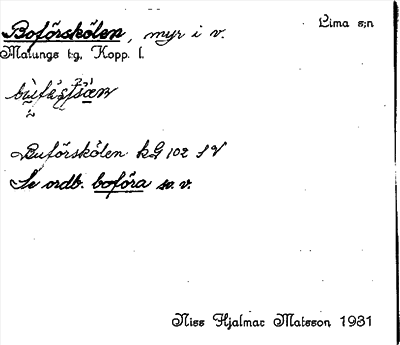 Boförskölen, myr i v. Lima s:n
Malungs t:g, Kopp. l.
Buförskölen kG 102 SV
Se ordb. boföra sv. v.
Niss Hjalmar Matsson 1931